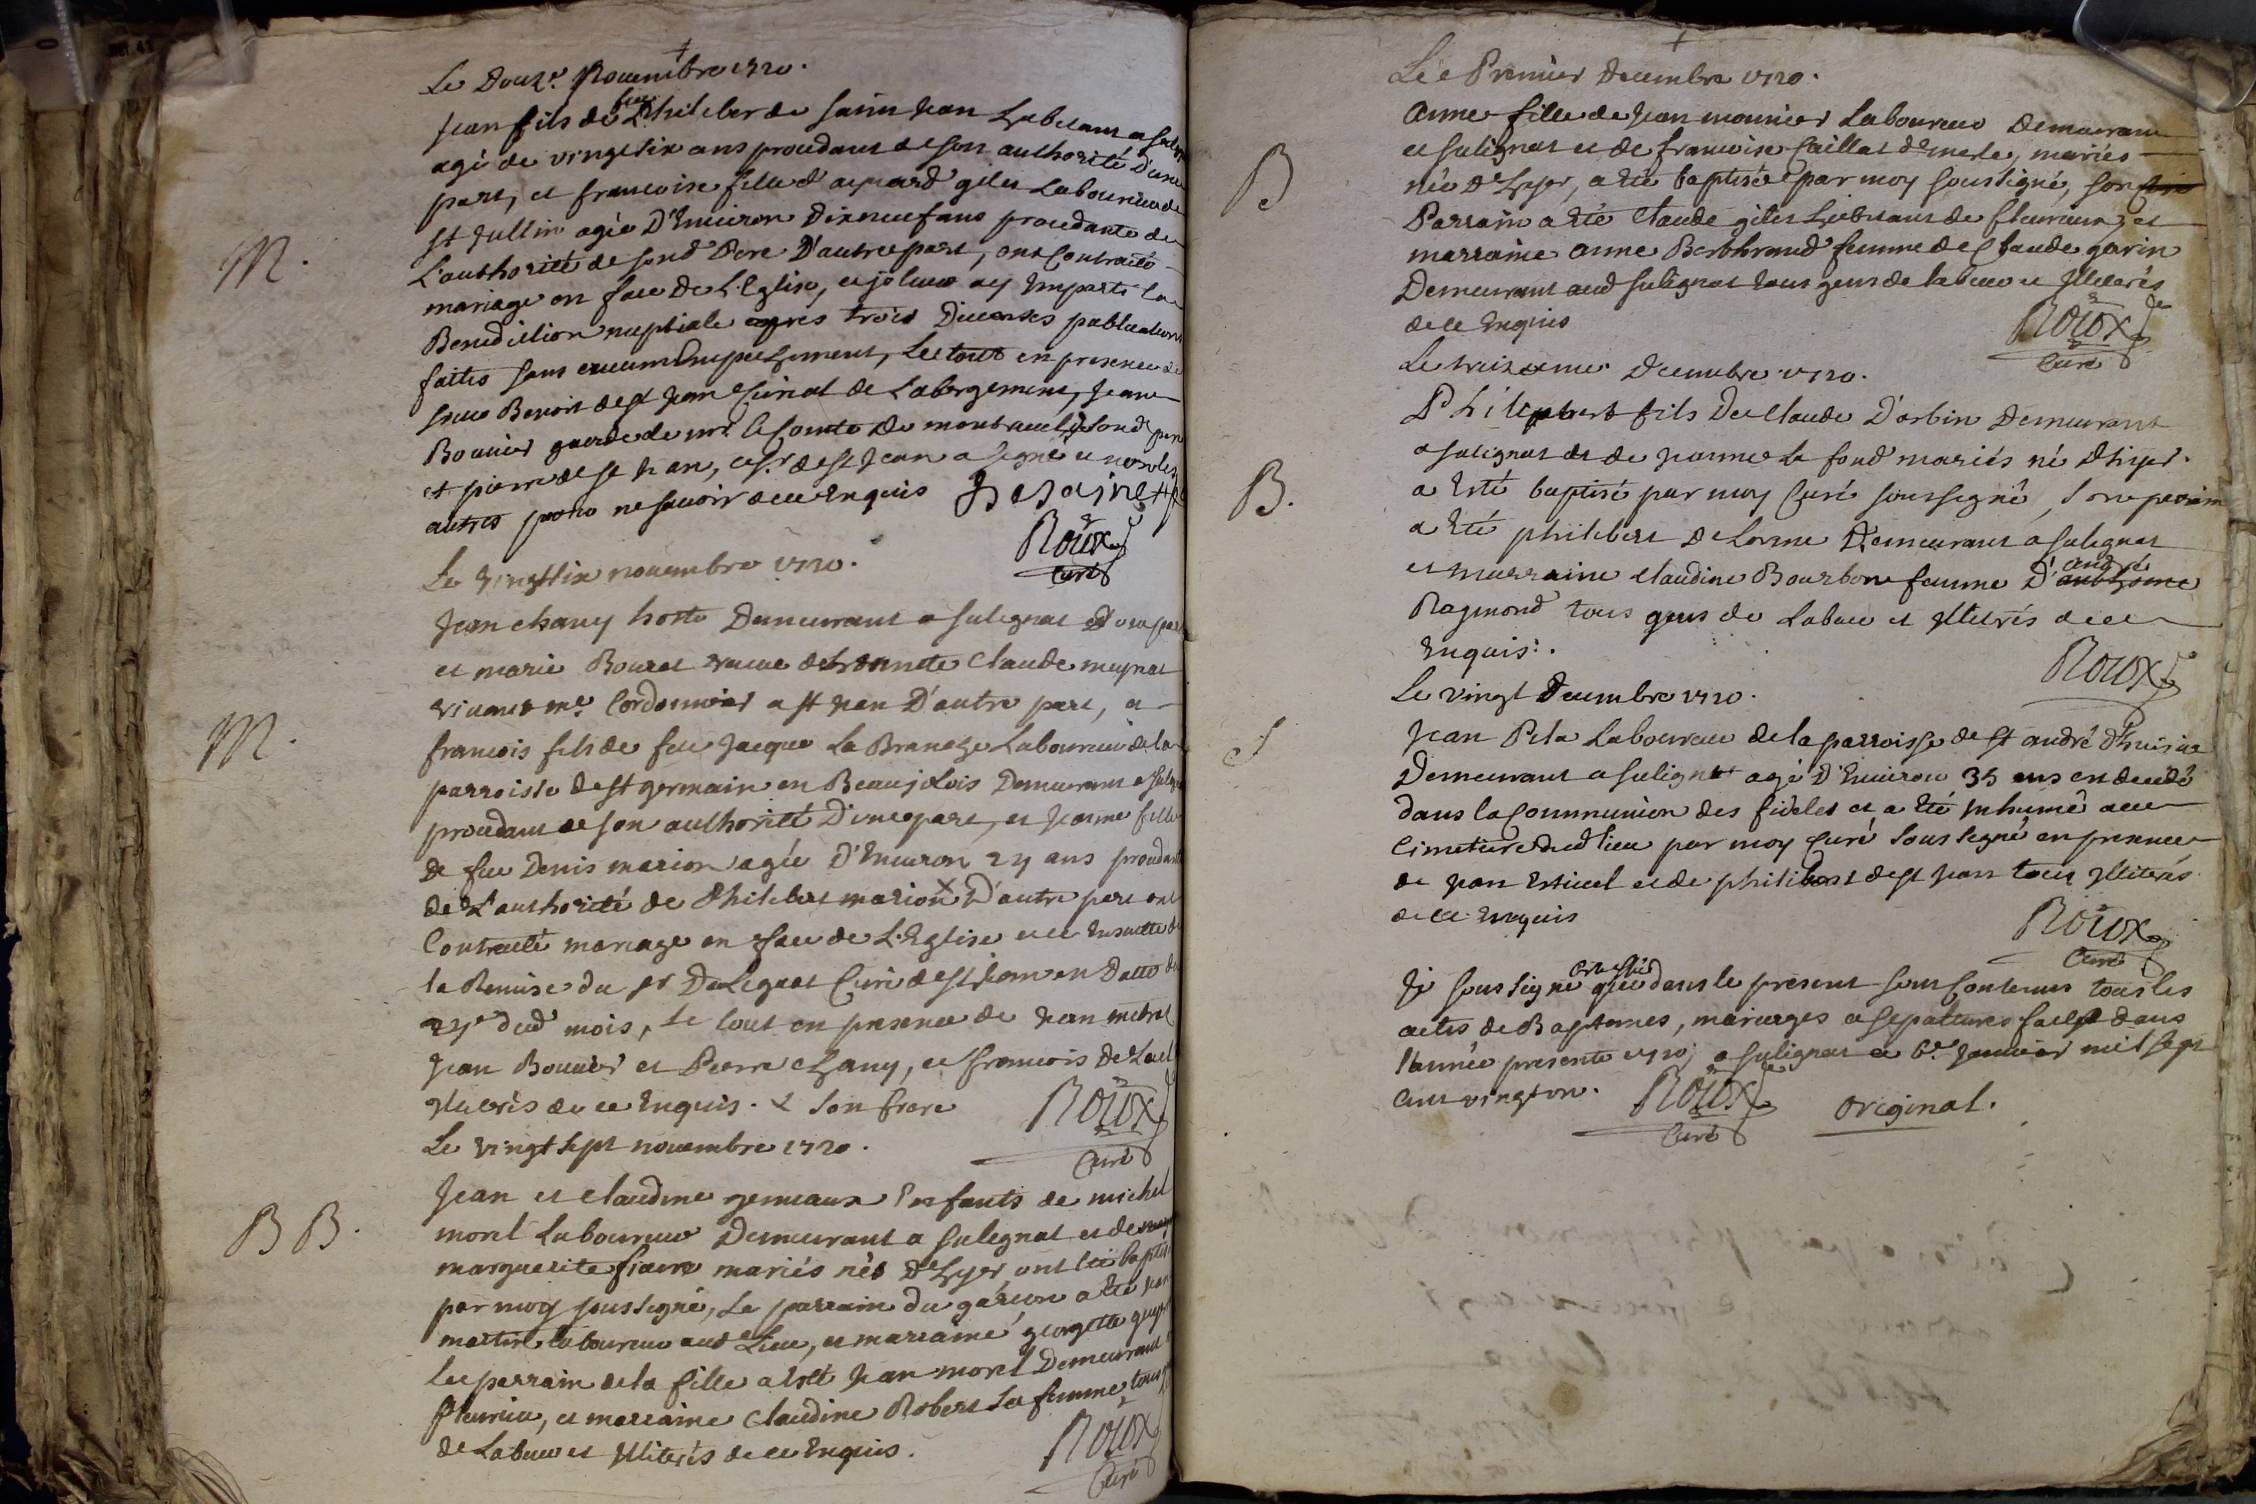 Le Douze. Novembre 1720.
M.
Jean fils de feu Philiber de saint Jean
agé de vingt six ans procedant de son authorité D'une
part, et francoise fille d'aymard giles Laboureur de
st Jullin agée D'Environ Dixneuf ans procedante de
L'authorité de sond Pere D'autre part, ont Contracté
mariage en face De L'Eglise, et je leur ay Imparti la
Benediction nuptiale apres trois Diverses publications
faites sans aucun Empechement, Le tout en presence de
sieur Benoit de st Jean de Labergement, Jean
Bouvier garde de mr le Comte De montrevel
et pierre de st Jean, de st Jean a signé et non les
autres pour ne scavoir de ce Enquis
Roux
Curé
Le vingt six novembre 1720.
M.
Jean chany hoste Demeurant a sulignat D'une part
et marie Bouret veuve de honnete Claude meynat
vivant me. Cordonnier a st Jean D'autre part, et
francois fils de feu Jacque La Branche Laboureur de la
parroisse de st germain en Beaujolois Demeurant a
procedant de son authorité D'une part, et Jeanne fille
De feu Denis marion agée D'Environ 24 ans procedante
de L'authorité de Philibert marion x D'autre part ont
Contracté mariage en face de L'Eglise et ce Ensuitte de
la Remise du sr Curé de st Jean en Datte du
dud mois, Le tout en presence de Jean
Jean Bouvier et Pierre chany, et francois
Illiterés de ce Enquis. x son frere
Roux
Curé
Le vingt sept novembre 1720.
BB.
Jean et claudine gemeaux Enfants de michel
morel Laboureur Demeurant a sulegnat et de
marguerite mariés nés D'hyer ont été baptisé
par moy soussigné, Le parrain du garcon a été Jean
martin laboureur aud Lieu, et marraine georgette
Le parrain de la fille a esté Jean morel Demeurant
fleurieu, et marraine Claudine Robert sa femme tous
de Labeur et Illiterés de ce Enquis.
Roux
Curé
Le Premier Decembre 1720.
B
Anne fille de Jean monnier Laboureur Demeurant
a sulignat et de francoise Caillat mariés
née D'hyer, a été baptisée par moy soussigné, son
Parrain a été Claude giles Liebvrant de fleurieux, et
marraine anne femme de Claude garin
Demeurant aud sulignat tous gens de labeur et Illiterés
de ce Enquis
Roux
Curé
Le treizieme Decembre 1720.
B.
Philibert fils De Claude D'orbin Demeurant
a sulignat et de Jeanne La fond mariés né D'hyer.
a Esté baptisé par moy Curé soussigné, son parain
a été philibert De Lorme Demeurant a sulegnat
et marraine claudine Bourbon femme D' andré
Raymond tous gens de Labeur et Illiterés de ce
Enquis.
Roux
Le vingt Decembre 1720.
S
Jean Pela Laboureur de la parroisse de st andré d'huiriat
Demeurant a sulignat agé D'Environ 35 ans en decedé
dans la Communion des fideles et a été Inhumé au
Cimetiere dud Lieu par moy Curé soussigné en presence
de Jean et de philibert de st Jean tous Illiterés
de ce Enquis
Roux
Curé
Je soussigné certifie que dans le present sont Contenus tous les
actes de Baptemes, mariages et sepultures faits dans
l'année presente 1720; a sulignat ce 6e Janvier mil sept
cent vingt un.
Roux
Curé
Original.